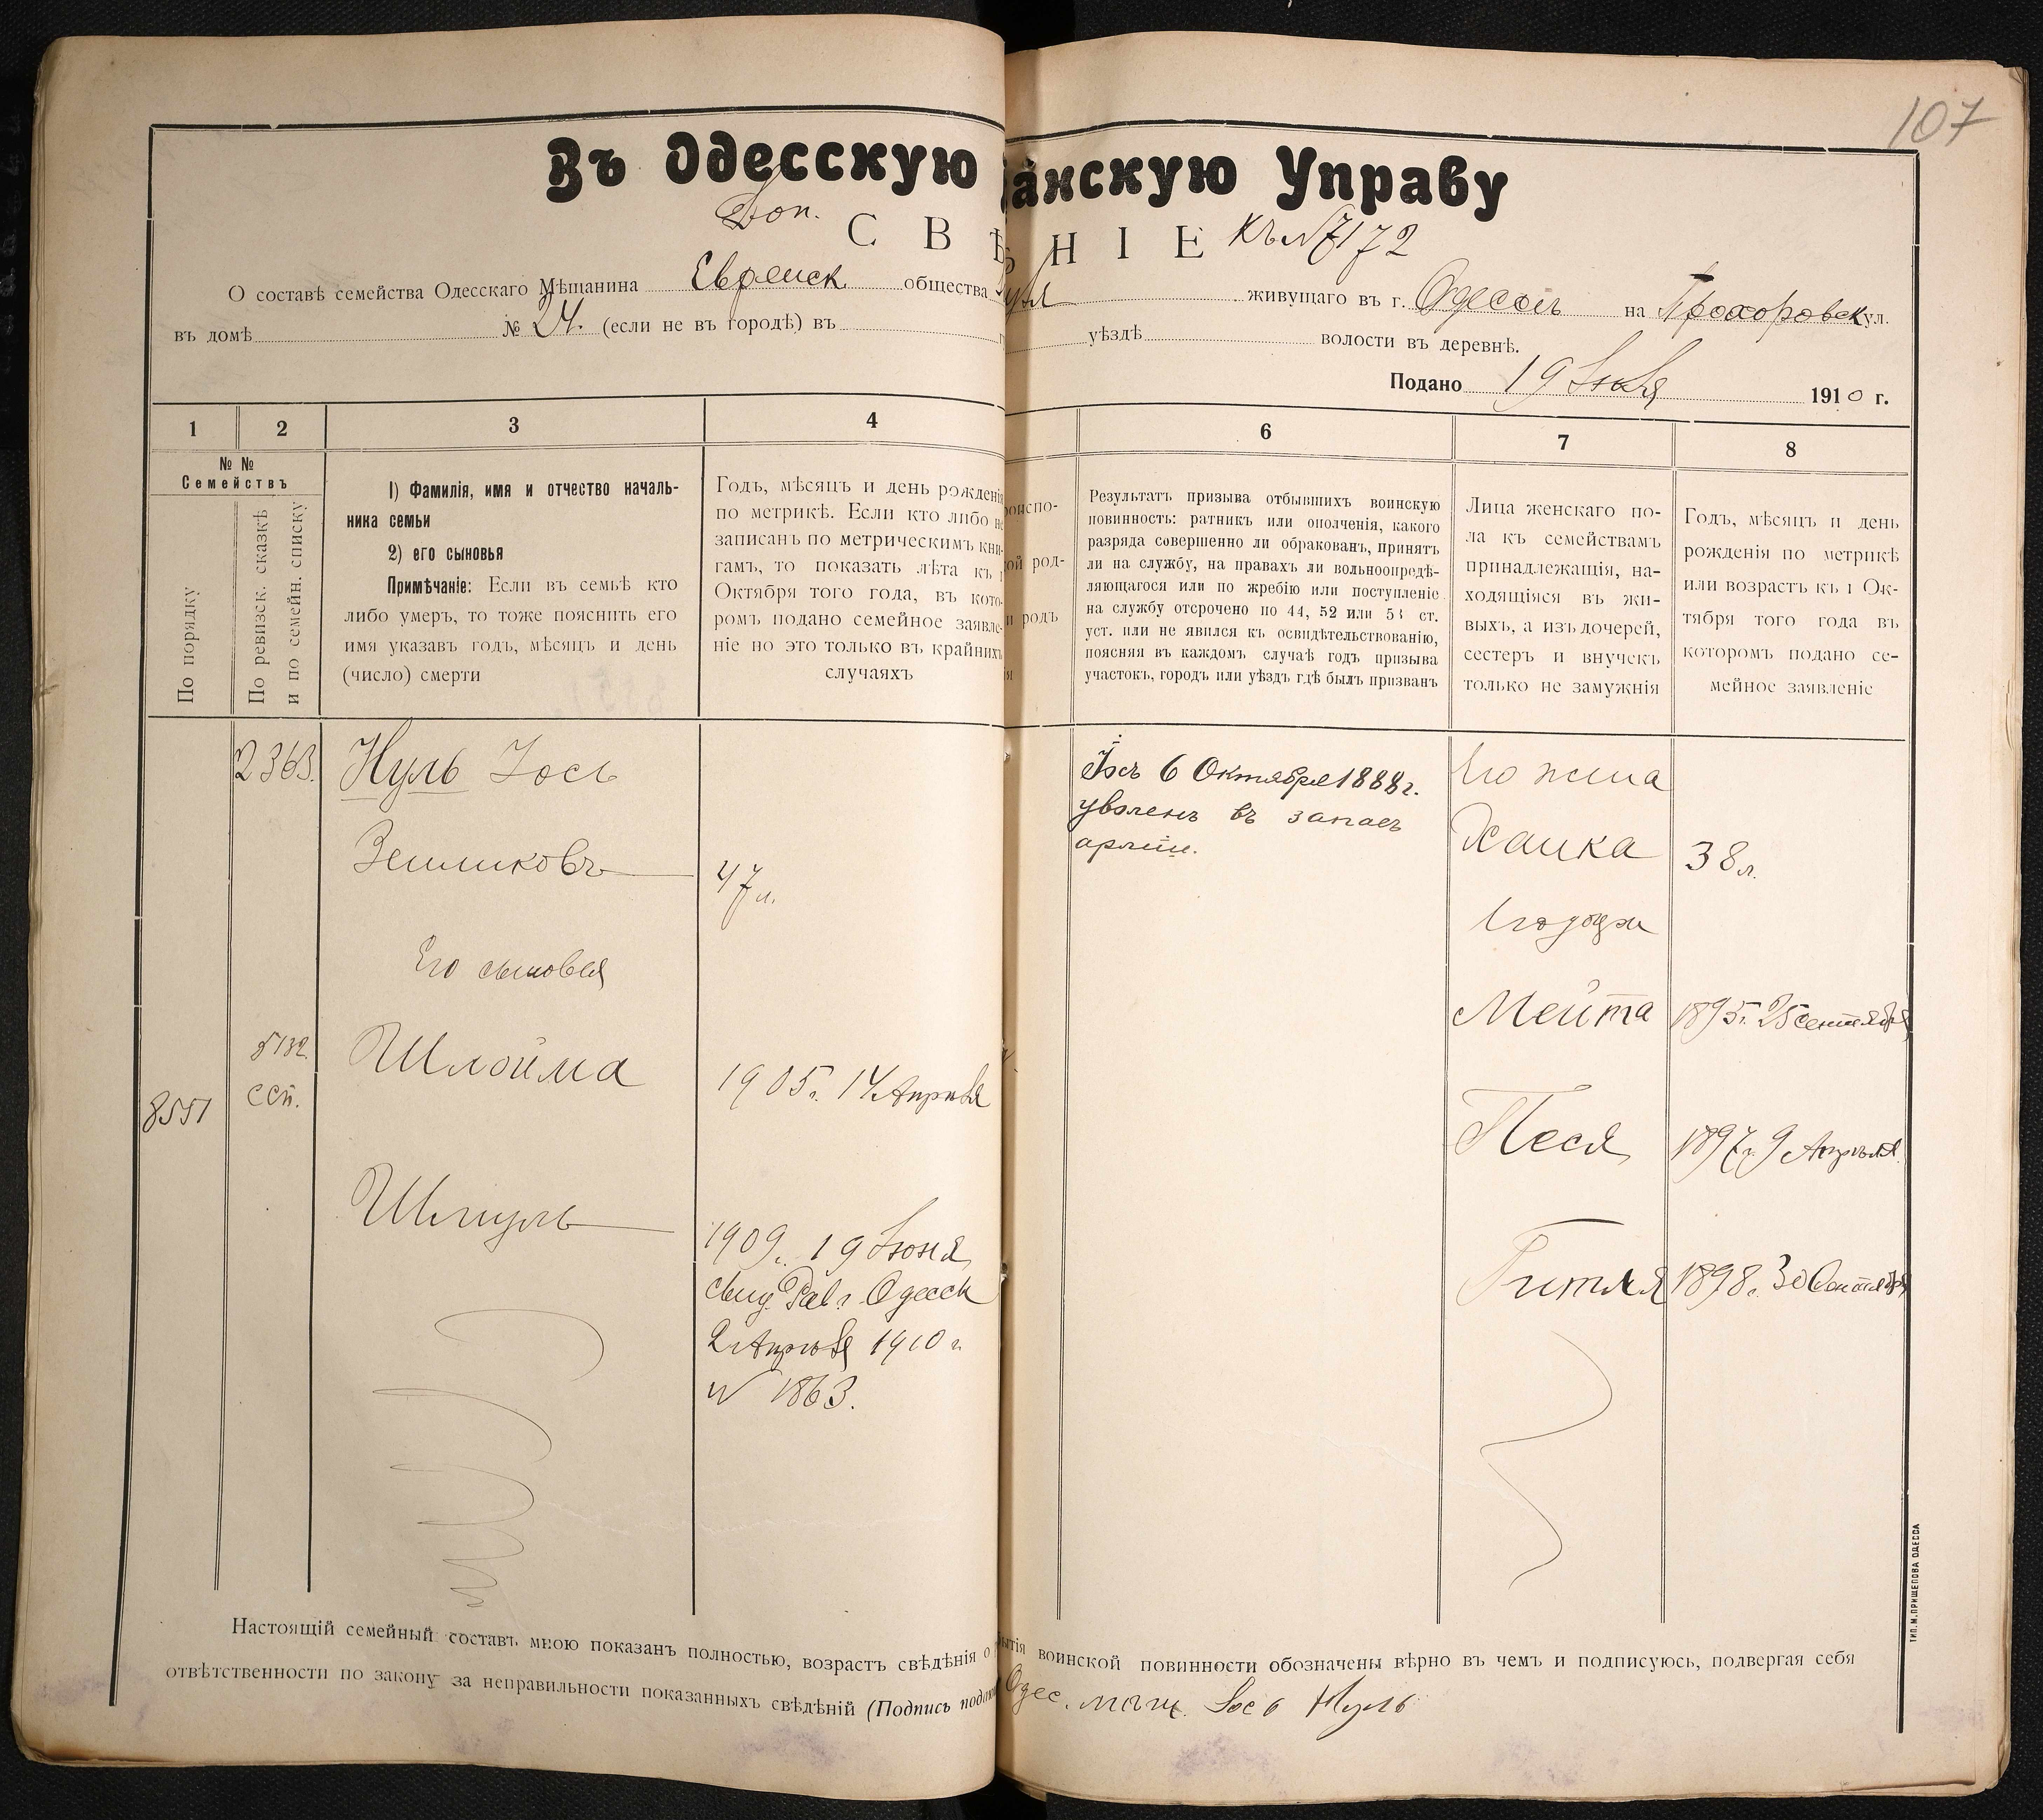 107
Въ Одесскую
анскую Управу
Доп.
С В Ѣ
Н I Е
Къ № 7172
О составѣ семейства Одесскаго Мѣщанина Еврейск общества
живущаго въ г. Одессѣ на Прохоровск ул.
въ домѣ № 24. (если не въ городѣ) въ
уѣздѣ волости въ деревнѣ.
Подано 19 Июля 1910 г.
1
2
3
4
6
7
8
№ №
Семействъ
По порядку
По ревизск. сказкѣ
и по семейн. списку
1) Фамилія, имя и отчество началь-
ника семьи
2) его сыновья
Примѣчаніе: Если въ семьѣ кто
либо умеръ, то тоже пояснить его
имя указавъ годъ, мѣсяцъ и день
(число) смерти
Годъ, мѣсяцъ и день рожденія
по метрикѣ. Если кто либо не
записанъ по метрическимъ кни-
гамъ, то показать лѣта къ 1
Октября того года, въ кото-
ромъ подано семейное заявле-
ніе но это только въ крайнихъ
случаяхъ
оиспо-
ой род-
и родъ
ія
Результатъ призыва отбывшихъ воинскую
повинность: ратникъ или ополченія, какого
разряда совершенно ли обракованъ, принятъ
ли на службу, на правахъ ли вольноопредѣ-
ляющагося или по жребію или поступленіе
на службу отсрочено по 44, 52 или 53 ст.
уст. или не явился къ освидѣтельствованію,
поясняя въ каждомъ случаѣ годъ призыва
участокъ, городъ или уѣздъ гдѣ былъ призванъ
Лица женскаго по-
ла къ семействамъ
принадлежащія, на-
ходящіяся въ жи-
выхъ, а изъ дочерей,
сестеръ и внучекъ
только не замужнія
Годъ, мѣсяцъ и день
рожденія по метрикѣ
или возрастъ къ 1 Ок-
тября того года въ
которомъ подано се-
мейное заявленіе
2363.
Нуль Іось
Зейликовъ
47 л.
Его сыновья
5132
ССП.
8551
Шлойма
1905 г. 14 Апрѣля
Шмуль
1909 г. 19 Іюня
свид. Рав. г. Одесск
2 Апрѣля 1910 г
№ 1863.
Іось 6 Октября 1888 г.
уволенъ въ запасъ
арміи.
Его жена
Хайка
38 л.
Его дочери
Мейта
1895 г. 25 Сентября
Песя
1897 г. 9 Апрѣля
Гитля
1898 г. 30 Сентября
Настоящій семейный составъ мною показанъ полностью, возрастъ свѣдѣнія о
бытія воинской повинности обозначены вѣрно въ чемъ и подписуюсь, подвергая себя
отвѣтственности по закону за неправильности показанныхъ свѣдѣній (Подпись подаю
Одес. мѣщ. Іось Нуль
ТИП. М. ПРИЩЕПОВА ОДЕССА